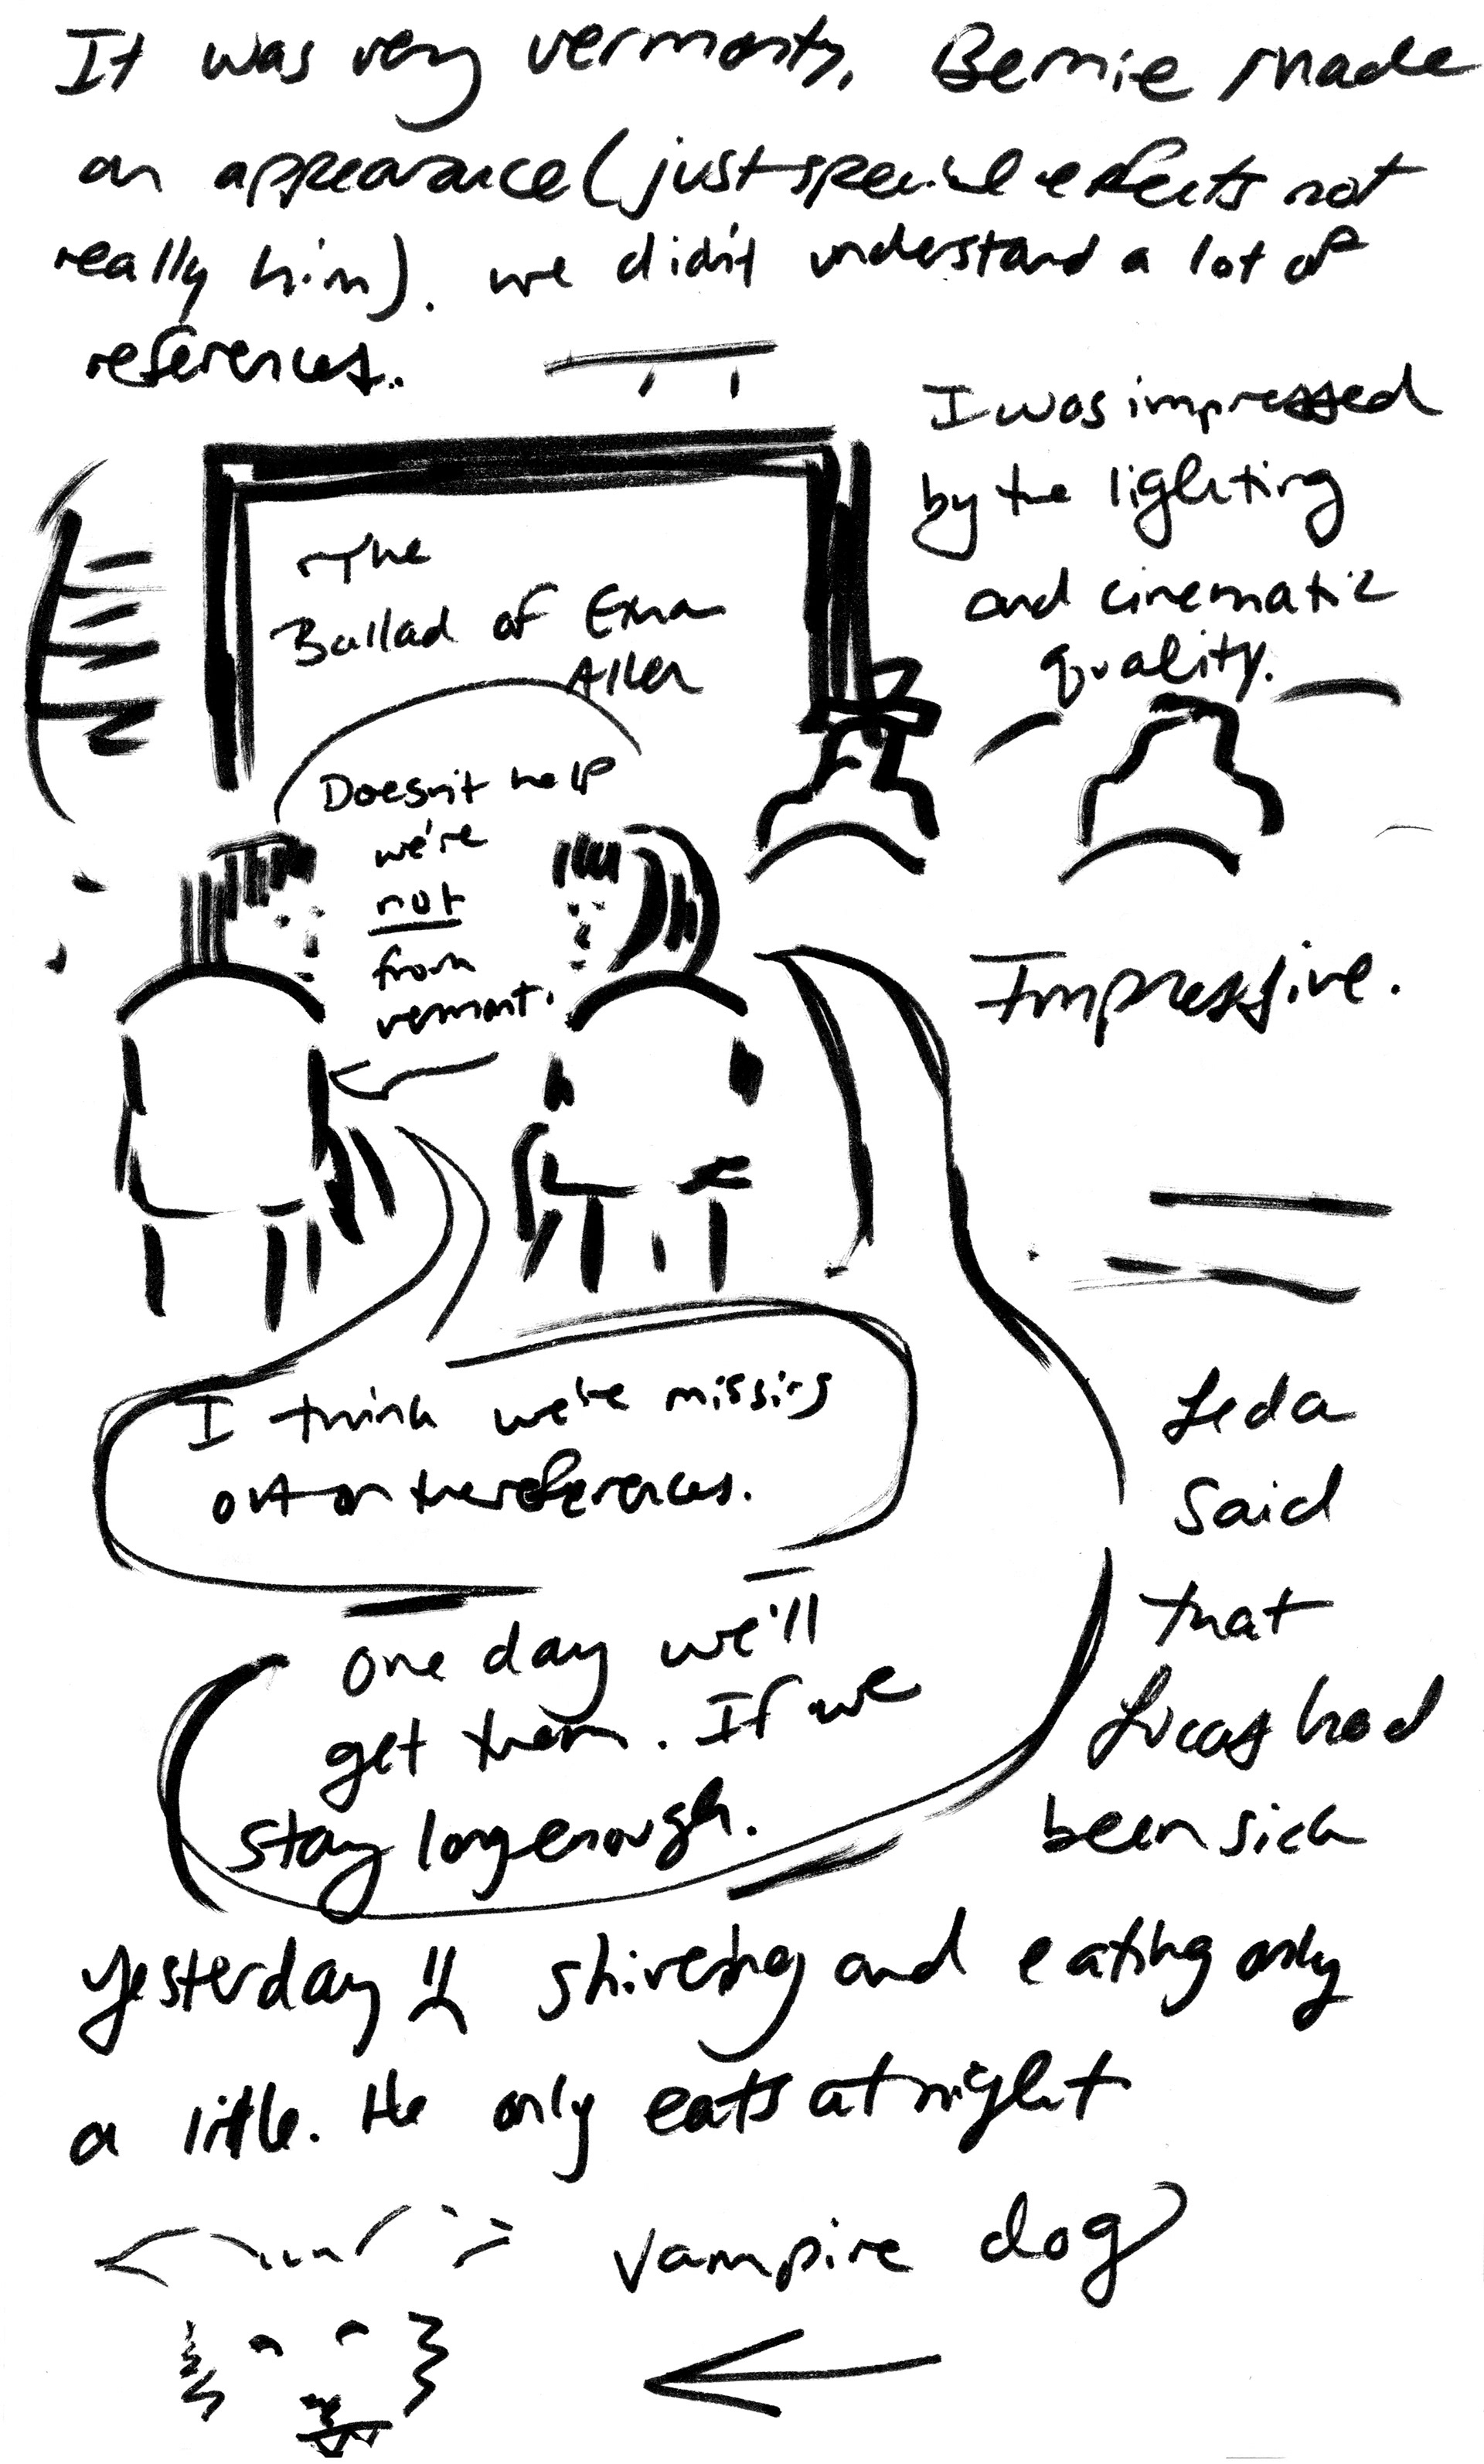 It was very vermonty. Bernie made
an appearance (just special effects not
really him). we didn't understand a lot of
references..
I was impressed
by the lighting
and cinematic
quality.
The
Ballad of Ethan
Allen
Doesn't help
we're
not
from
vermont.
Impressive.
I think we're missing
out on the references.
one day we'll
get them. If we
stay long enough.
Leda
said
that
Lucas had
been sick
yesterday shivering and eating only
a little. He only eats at night
vampire dog